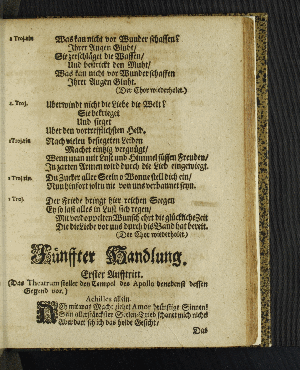 2 Trojan
Was kan nicht vor Wunder schaffen?
Ihrer Augen Gluht/
Sie zerschläget die Waffen/
Und bestrickt den Muht/
Was kan nicht vor Wunder schaffen
Ihrer Augen Gluht.
(Der Chor wiederholet.)
2. Troj.
Uberwindt nicht die Liebe die Welt?
Sie bekrieget
Und sieget
Uber den vortrefflichsten Held.
Nach vielen besiegeten Leiden
Machet einzig vergnügt/
Wenn man mit Lust und Himmel süssen Freuden/
In zarten Armen wird durch die Lieb eingewiegt.
Du Zucker aller Seelen Wonne stell dich ein/
Nun hinfort soltu nie von uns verbannet seyn.
1 Troj.
Der Friede bringt hier reichen Seegen
Er so läst alles in Lust sich regen/
Mit verdoppelten Wunsch ehrt die glückliche Zeit
Die die Liebe vor uns durch die Band hat bereit.
(Der Chor wiederholet.)
Fünffter Handlung.
Erster Aufftritt.
(Das Theatrum stellet den Tempel des Apollo benebenst dessen
Gegend vor.)
Achilles allein
mit was Macht ziehet Amor
Das